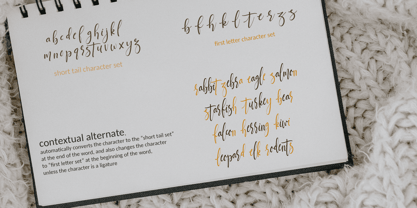 a b c d e f g h i j k l
m n o p q r s t u v w x y z
short tail character set
b f h k l t e r z s
first letter character set
rabbit zebra eagle salmon
starfish turkey bear
falcon herring kiwi
leopard elk rodents
contextual alternate.
automatically converts the character to the "short tail set"
at the end of the word, and also changes the character
to "first letter set" at the beginning of the word,
unless the character is a ligature